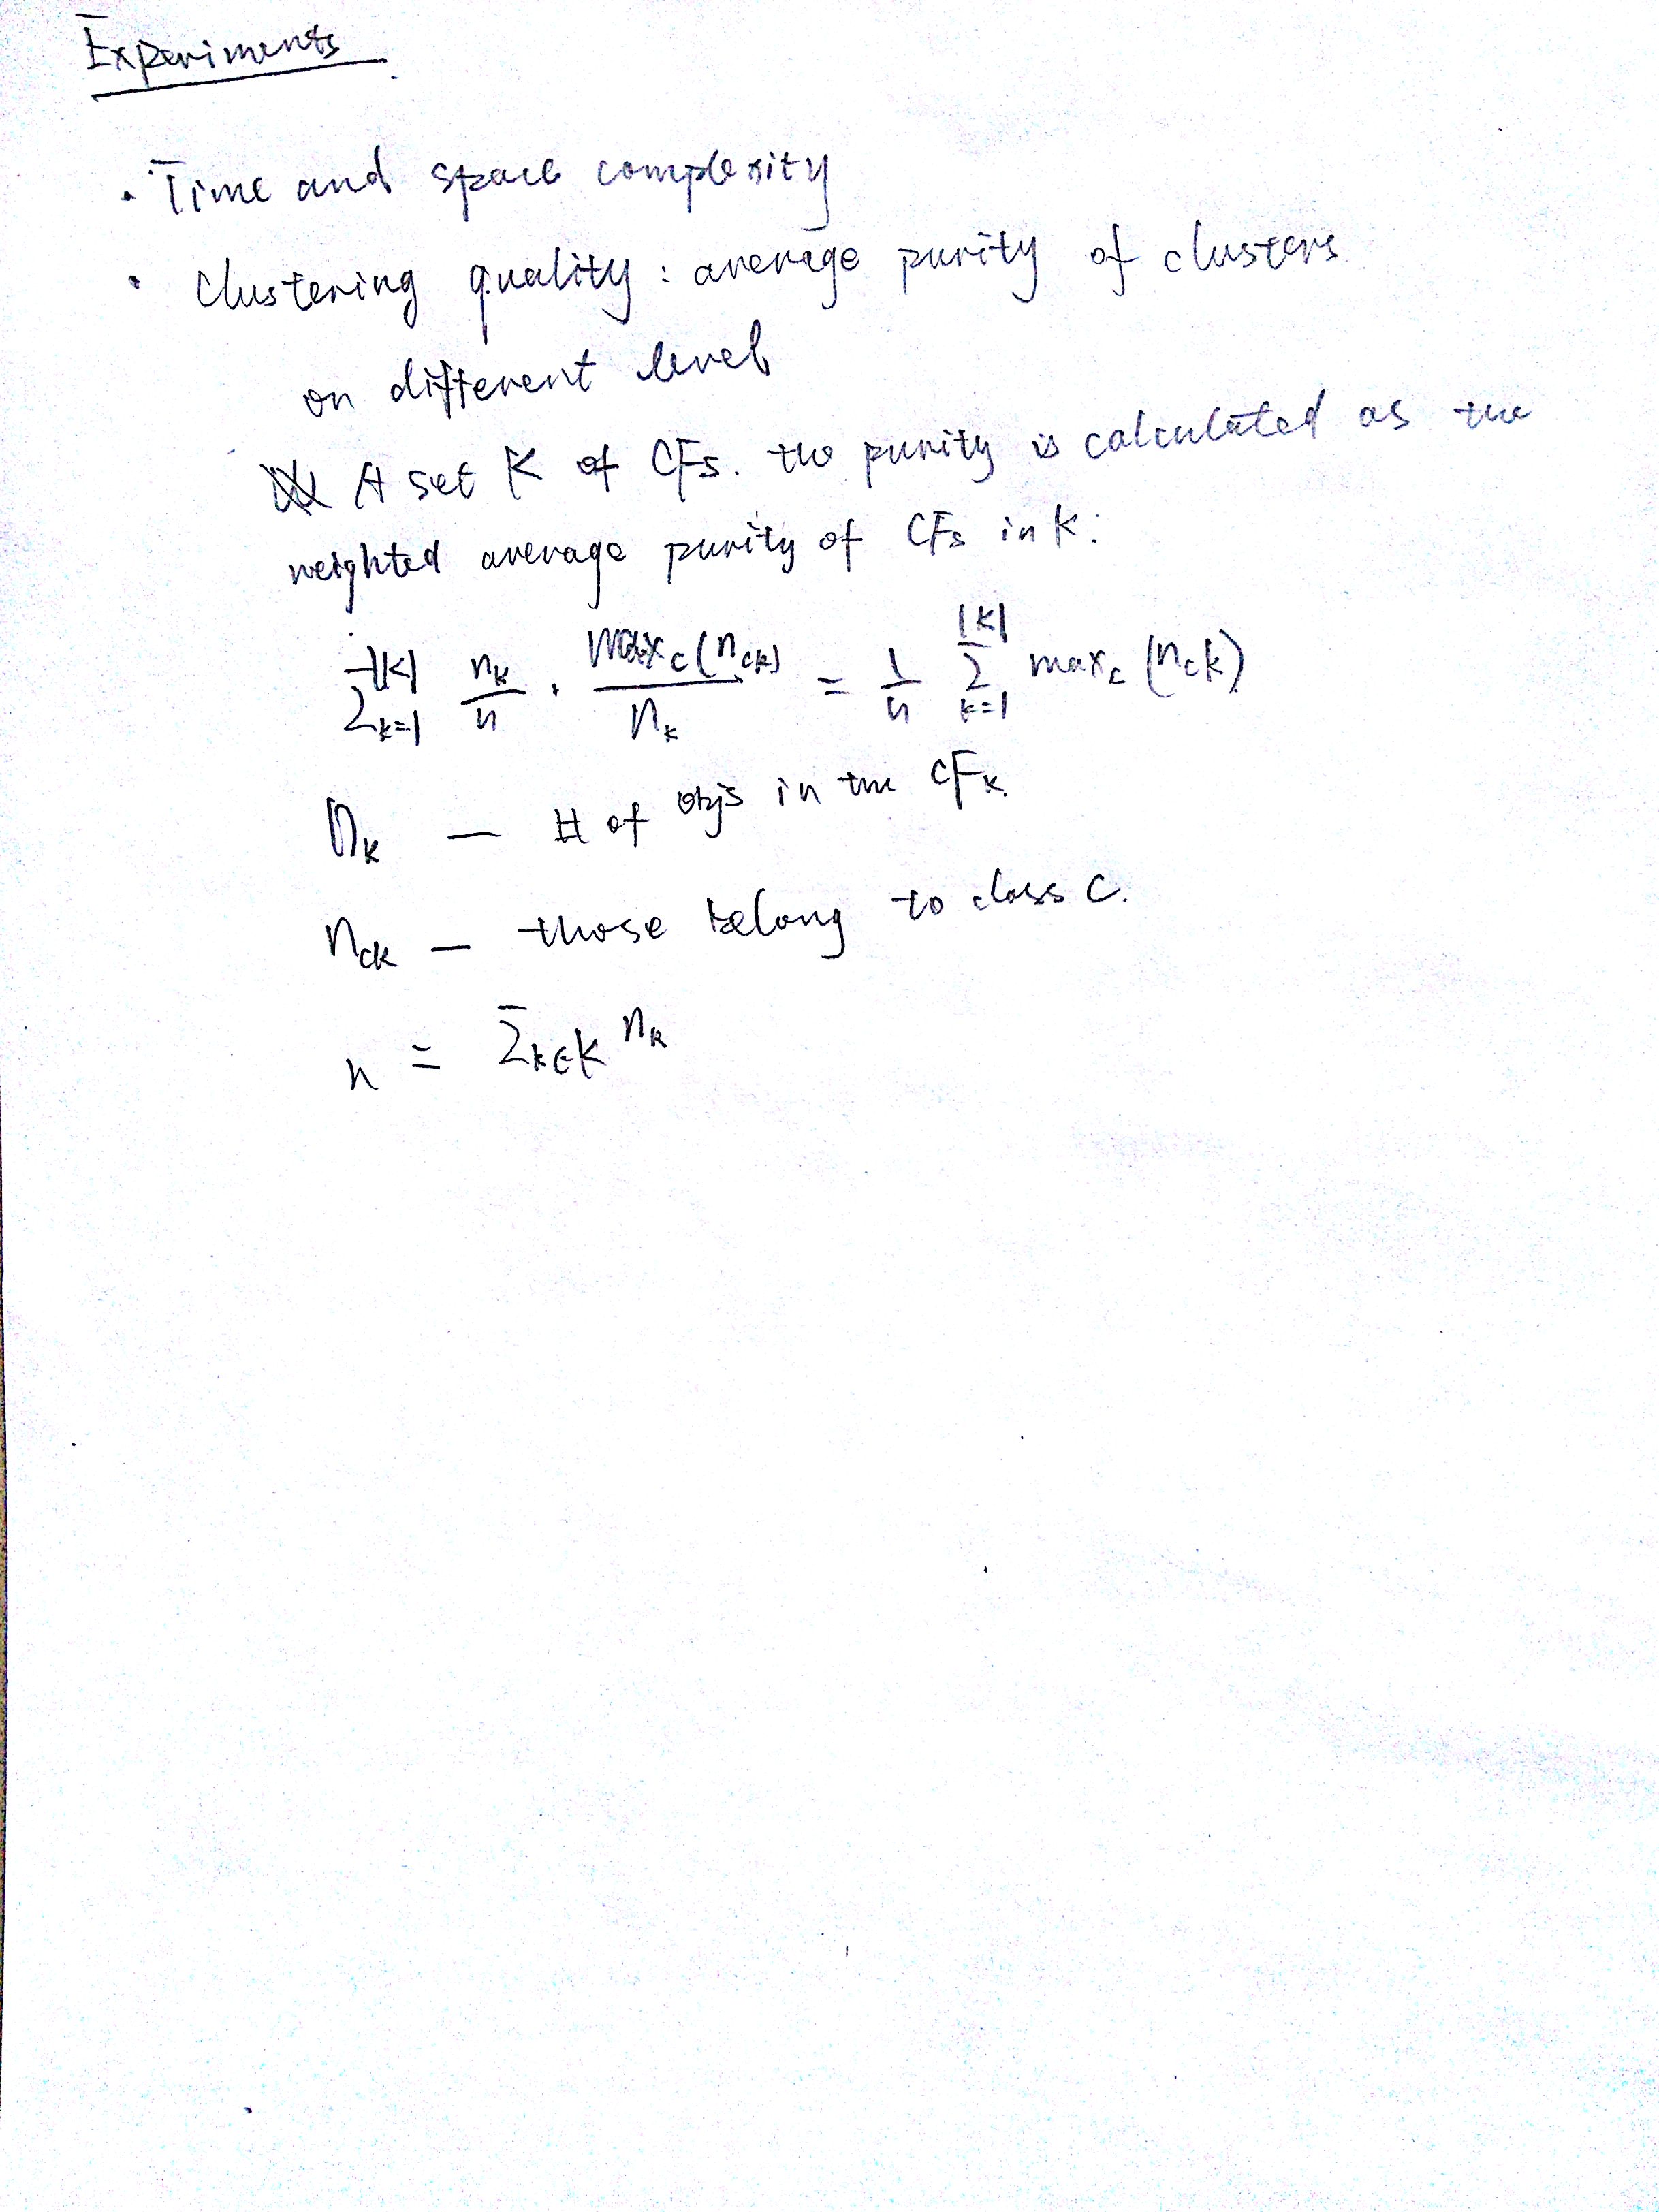 Experiments
· Time and space complexity
· Clustering quality : average purity of clusters
on different level
A set K of CFs. the purity is calculated as the
weighted average purity of CFs in K:
∑_{k=1}^{|K|} n_k/n · max_c(n_ck)/n_k = 1/n ∑_{k=1}^{|K|} max_c (n_ck)
n_k — # of objs in the CF_k.
n_ck — those belong to class C.
n = ∑_{k∈K} n_k